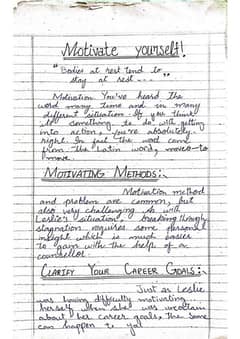 Motivate yourself!
"Bodies at rest tend to
stay at rest...."
Motivation You've heard the
word many time and in many
different situation. If you think
it something to do with getting
into action, you're absolutely
right. In fact the word came
from the Latin word, moveo-to
move.
MOTIVATING METHODS:.
Motivation method
and problem are common, but
also very challenging. As with
Leslie's situation, breaking through
stagnation requires some personal
insight which is much easier
to gain with the help of a
counsellor.
CLARIFY YOUR CAREER GOALS:.
Just as Leslie
was having difficulty motivating
herself when she was uncertain
about her career goals, the same
can happen to you